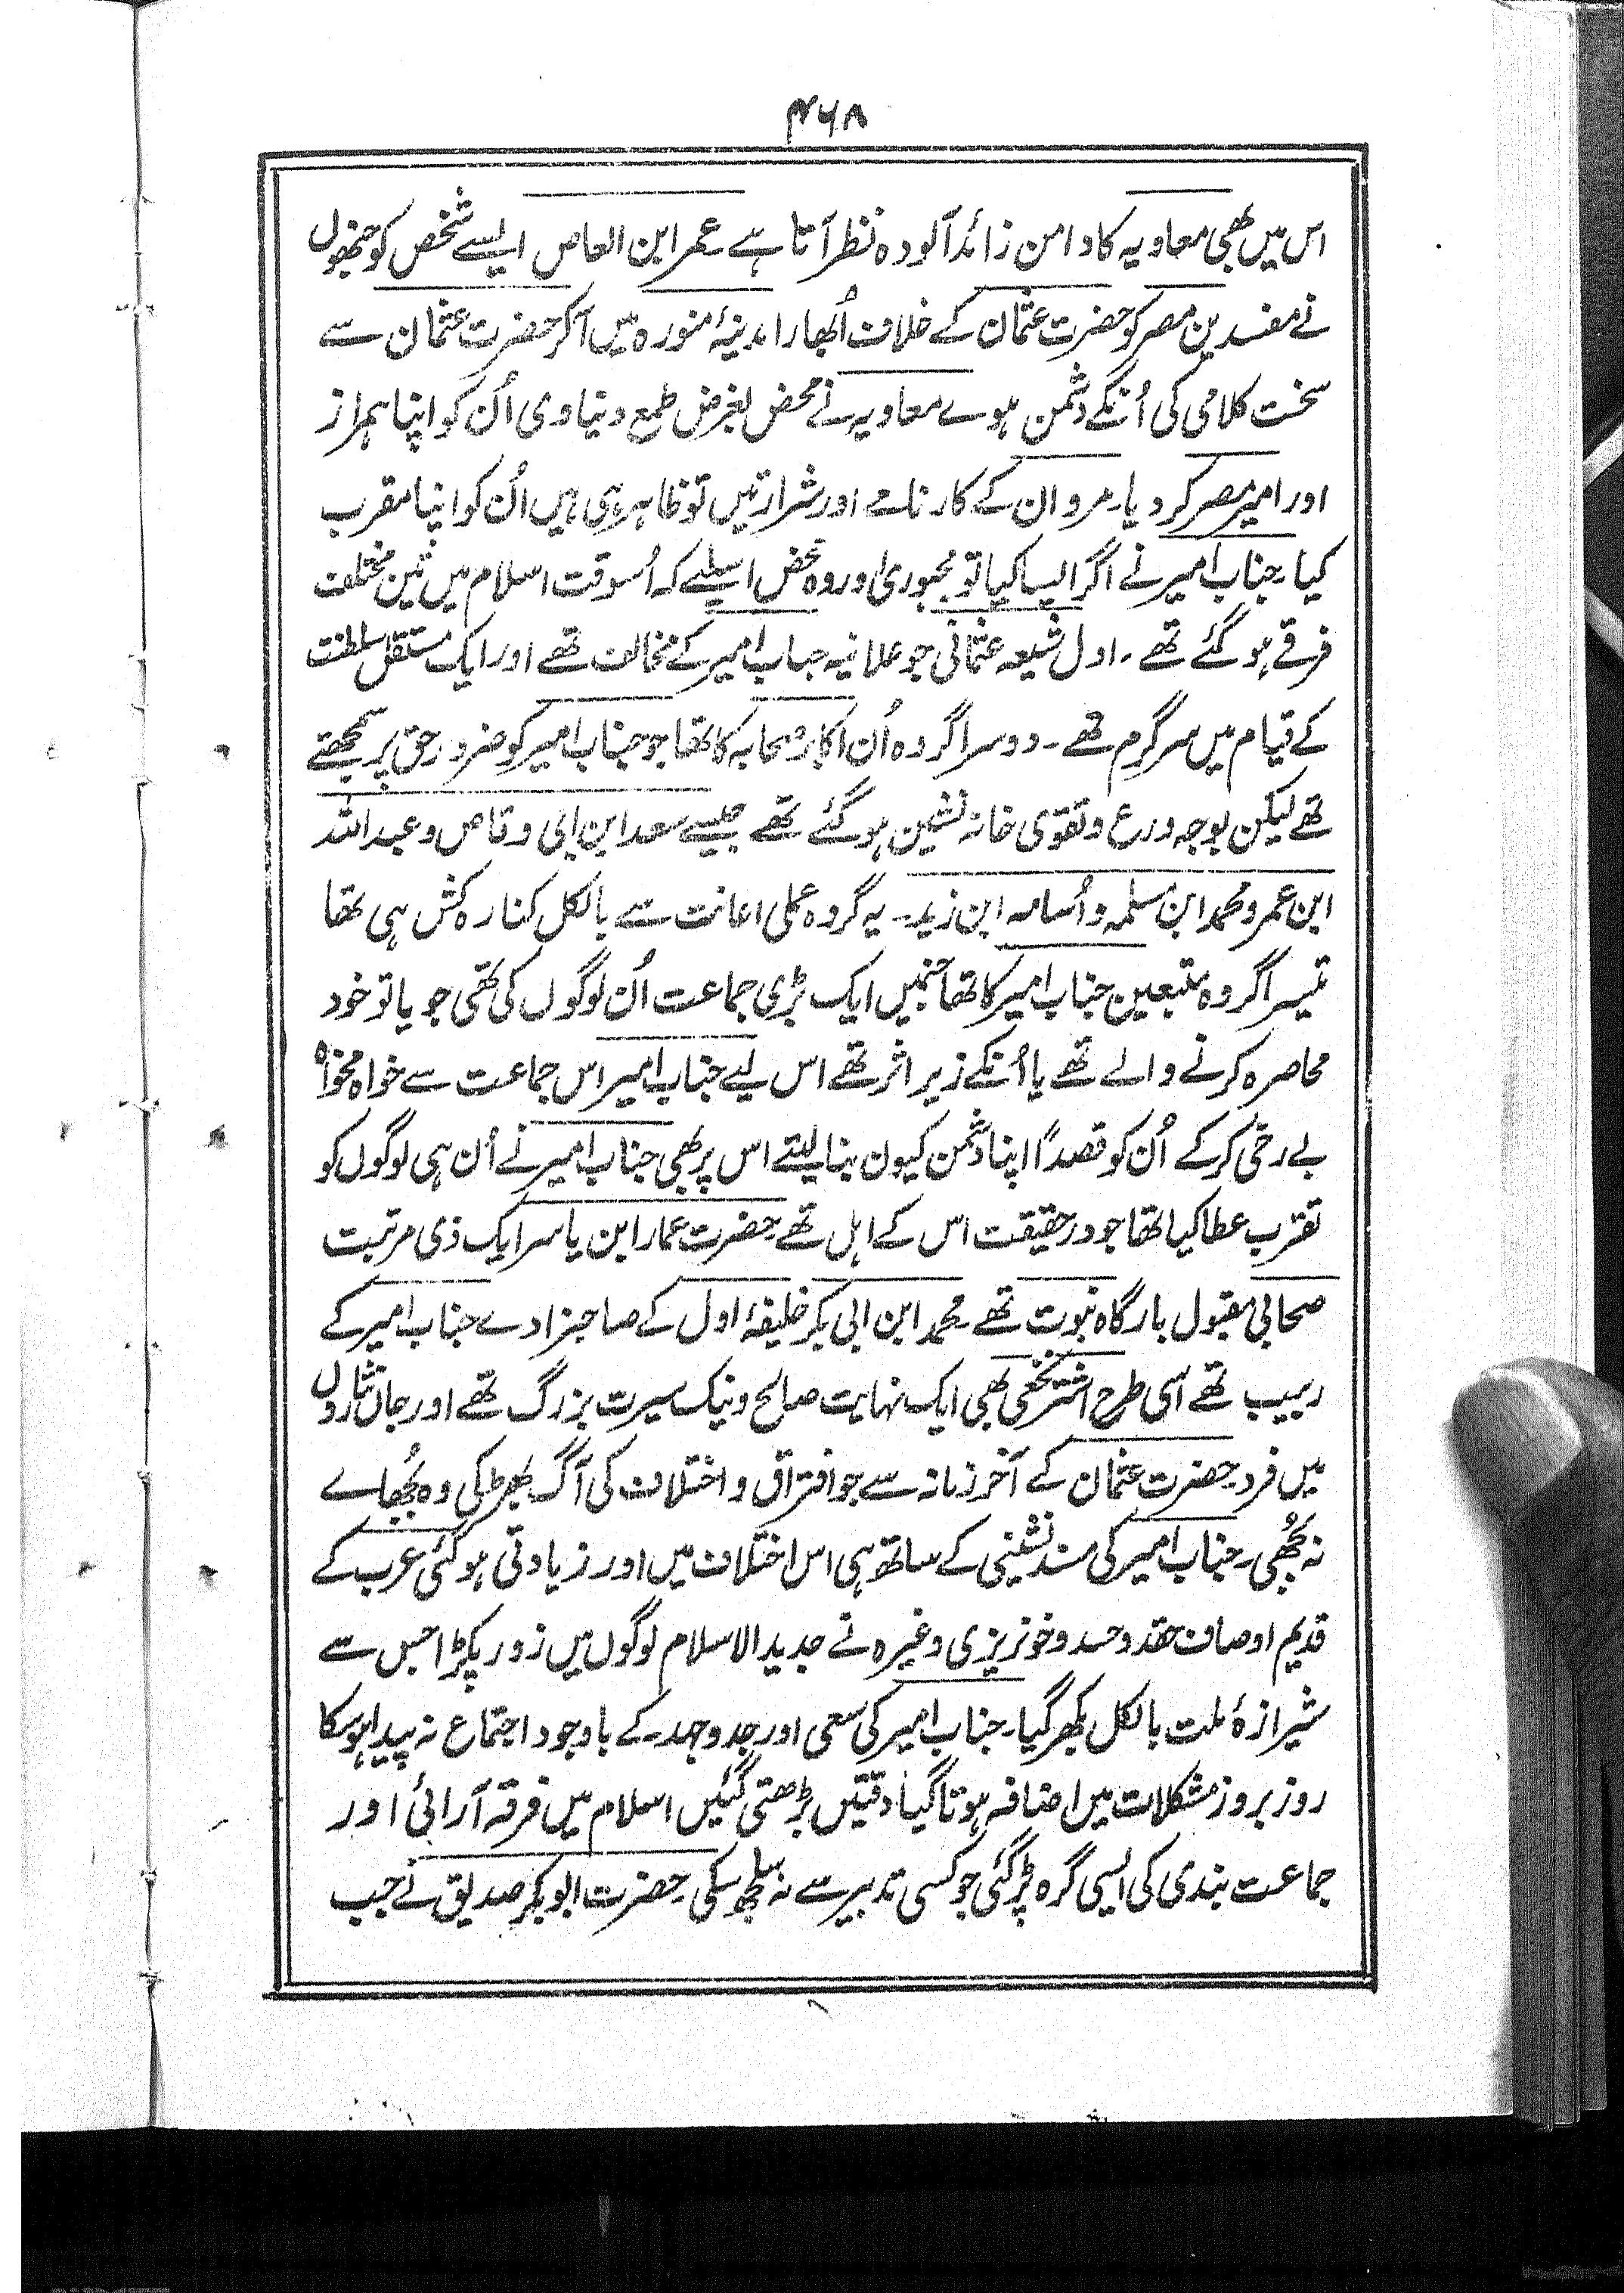 ۴۶۸
اس میں بھی معاویہ کا دامن زائد آلودہ نظر آتا ہے عمر ابن العاص ایسے شخص کو جنھوں
نے مفسدین مصر کو حضرت عثمان کے خلاف اُبھارا مدینۂ منورہ میں آکر حضرت عثمان سے
سخت کلامی کی اُنکے دشمن ہوے معاویہ نے محض بغرض طمع دنیاوی اُن کو اپنا ہمراز
اور امیر مصر کر دیا۔ مروان کے کارنامے اور شرارتیں تو ظاہر ہی ہیں اُن کو اپنا مقرب
کیا۔ جناب امیر نے اگر ایسا کیا تو بمجبوری اور وہ محض اسلیے کہ اُسوقت اسلام میں تین مختلف
فرقے ہو گئے تھے۔ اول شیعہ عثمانی جو علانیہ جناب امیر کے مخالف تھے اور ایک مستقل سلطنت
کے قیام میں سرگرم تھے۔ دوسرا گروہ اُن اکابر صحابہ کا تھا جو جناب امیر کو ضرور حق پر سمجھتے
تھے لیکن بوجہ ورع و تقوی خانہ نشین ہو گئے تھے جیسے سعد ابن ابی وقاص و عبد اللہ
ابن عمر و محمد ابن مسلمہ و اُسامہ ابن زید۔ یہ گروہ عملی اعانت سے بالکل کنارہ کش ہی تھا
تیسرا گروہ متبعین جناب امیر کا تھا جنمیں ایک بڑی جماعت اُن لوگوں کی تھی جو یا تو خود
محاصرہ کرنے والے تھے یا اُنکے زیر اثر تھے اس لیے جناب امیر اس جماعت سے خواہ مخواہ
بے رخی کرکے اُن کو قصداً اپنا دشمن کیون بنا لیتے اس پر بھی جناب امیر نے اُن ہی لوگوں کو
تقرب عطا کیا تھا جو درحقیقت اس کے اہل تھے حضرت عمار ابن یاسر ایک ذی مرتبت
صحابی مقبول بارگاہ نبوت تھے۔ محمد ابن ابی بکر خلیفۂ اول کے صاحبزادے جناب امیر کے
ربیب تھے اسی طرح اشتر نخعی بھی ایک نہایت صالح و نیک سیرت بزرگ تھے اور جاں نثاروں
میں فرد۔ حضرت عثمان کے آخر زمانہ سے جو افتراق و اختلاف کی آگ بھڑکی وہ بُجھاے
نہ بُجھی۔ جناب امیر کی مسند نشینی کے ساتھ ہی اس اختلاف میں اور زیادتی ہو گئی عرب کے
قدیم اوصاف حقد و حسد و خونریزی وغیرہ نے جدید الاسلام لوگوں میں زور پکڑا جس سے
شیرازۂ ملت بالکل بکھر گیا۔ جناب امیر کی سعی اور جد و جہد کے باوجود اجتماع نہ پیدا ہو سکا
روز بروز مشکلات میں اضافہ ہوتا گیا دقتیں بڑھتی گئیں اسلام میں فرقہ آرائی اور
جماعت بندی کی ایسی گرہ پڑ گئی جو کسی تدبیر سے نہ سلجھ سکی۔ حضرت ابو بکر صدیق نے جب